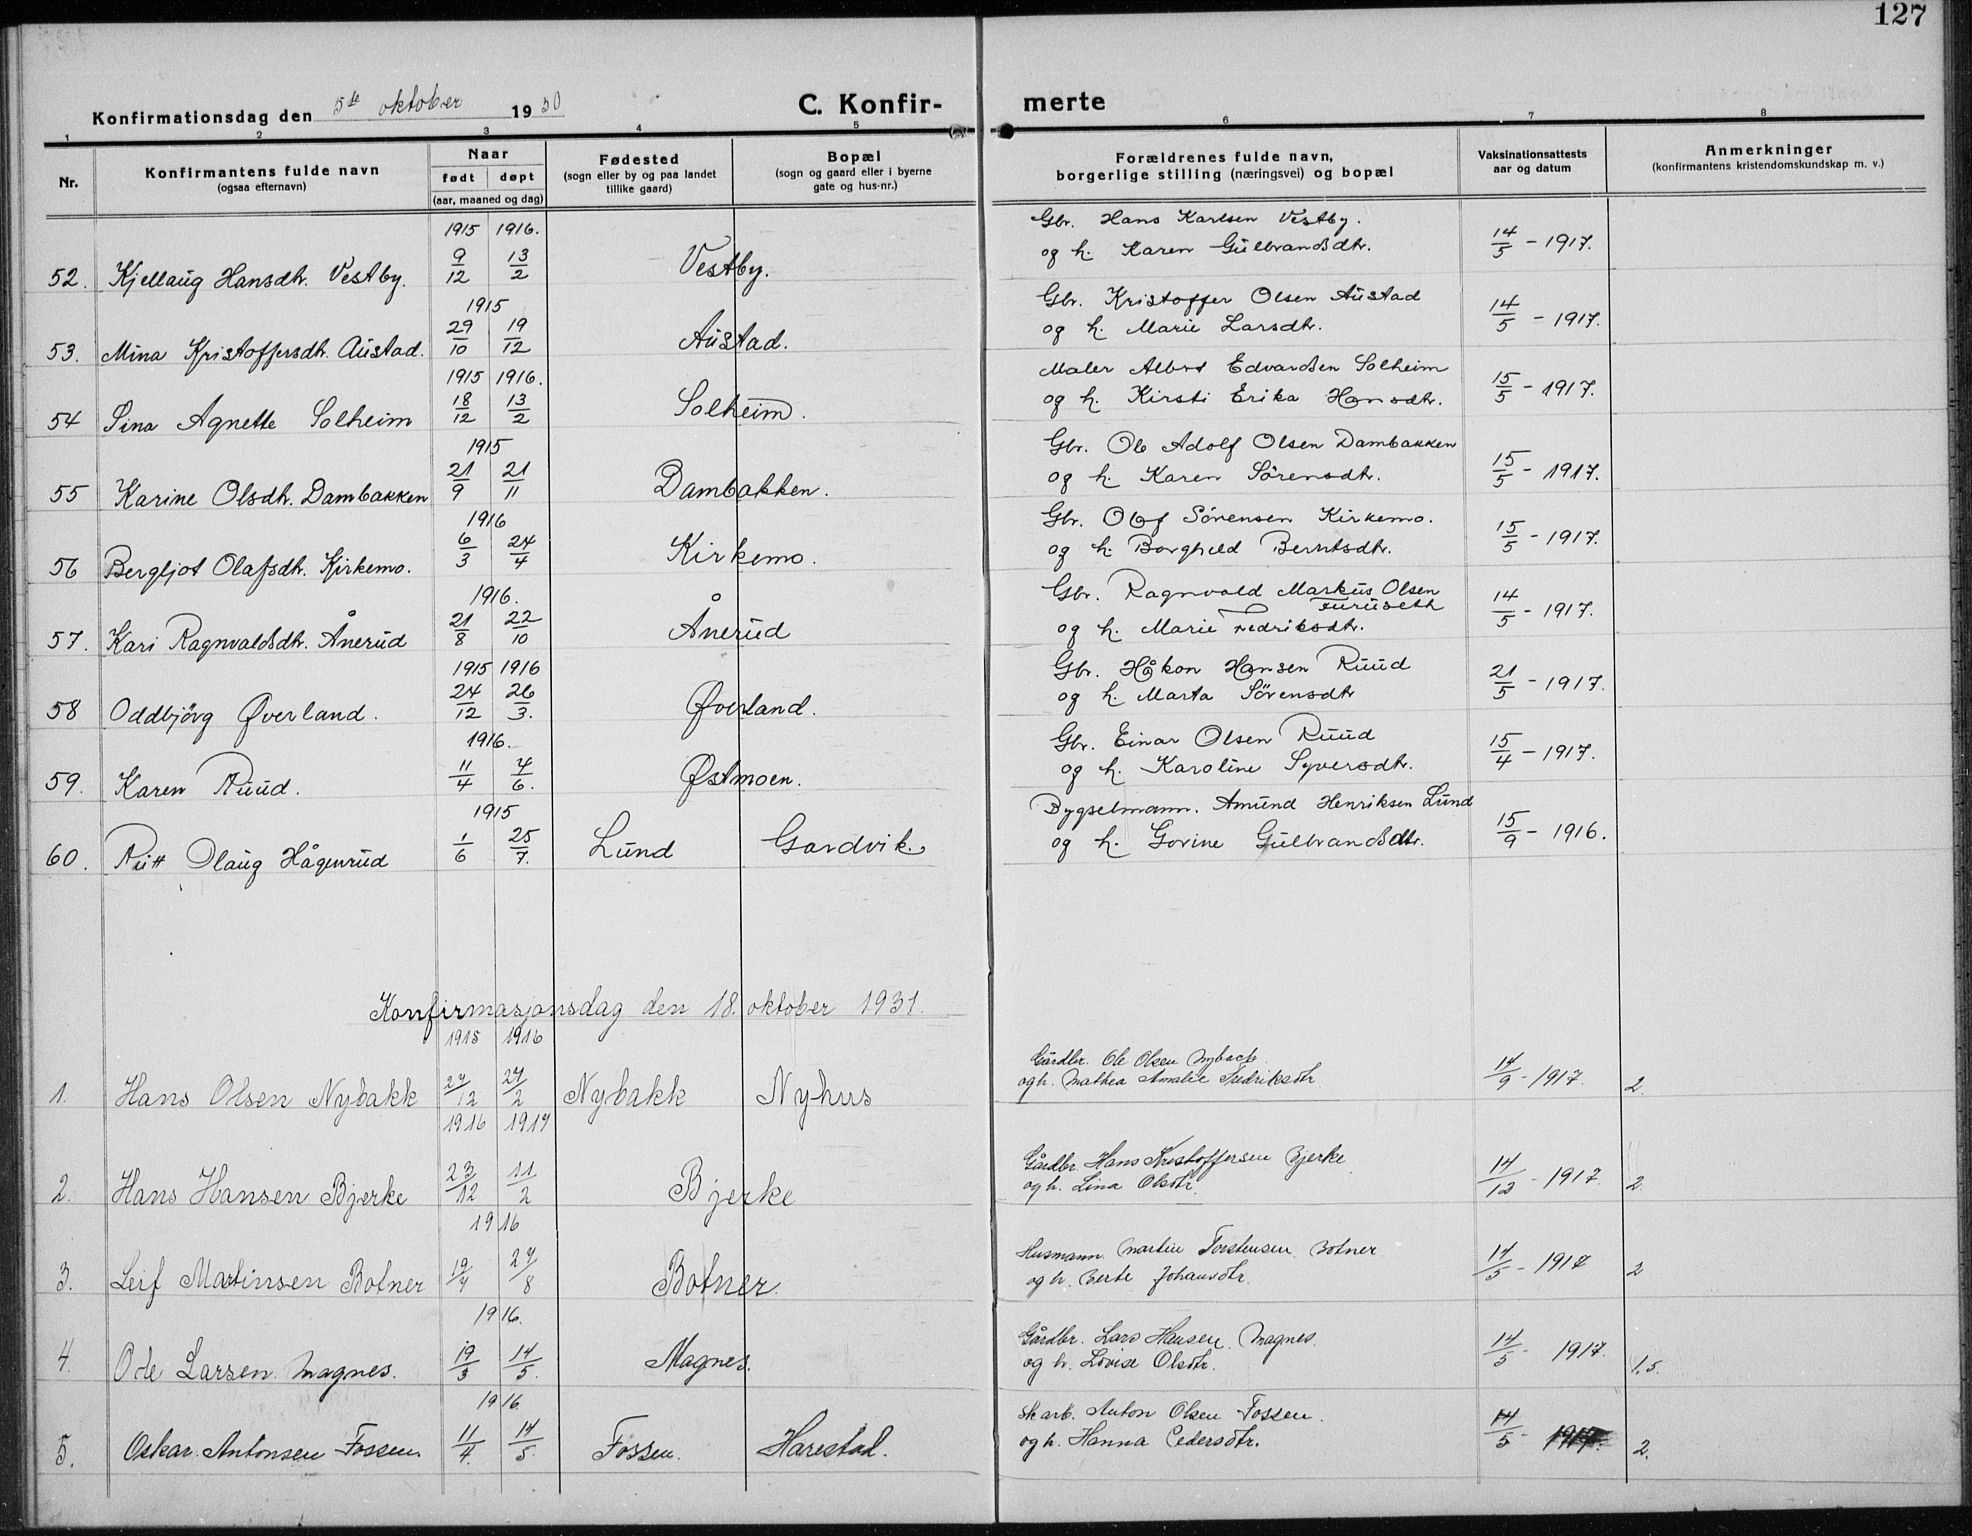 127
Konfirmationsdag den 5te oktober 1930 C. Konfirmerte
1 2 3 4 5 6 7 8
Nr. Konfirmantens fulde navn (ogsaa efternavn) Naar født døpt (aar, maaned og dag) Fødested (sogn eller by og paa landet tillike gaard) Bopæl (sogn og gaard eller i byerne gate og hus-nr.) Forældrenes fulde navn, borgerlige stilling (næringsvei) og bopæl Vaksinationsattests aar og datum Anmerkninger (konfirmantens kristendomskundskap m. v.)
1915 1916. Gbr. Hans Karlsen Vestby.
52. Kjellaug Hansdtr. Vestby. 9/12 13/2 Vestby. og h. Karen Gulbrandsdtr. 14/5 - 1917.
1915 Gbr. Kristoffer Olsen Austad
53. Mina Kristoffersdtr. Austad. 29/10 19/12 Austad. og h. Marie Larsdtr. 14/5 - 1917.
1915 1916. Maler Albert Edvardsen Solheim
54 Sina Agnette Solheim 18/12 13/2 Solheim. og h. Kirsti Erika Hansdtr. 15/5 - 1917.
1915 Gbr. Ole Adolf Olsen Dambakken
55 Karine Olsdtr. Dambakken 21/9 21/11 Dambakken. og h. Karen Sörensdtr. 15/5 - 1917.
1916 Gbr. Olaf Sörensen Kirkemo.
56 Bergljot Olafsdtr. Kirkemo. 6/3 24/4 Kirkemo. og h. Borghild Berntsdtr. 15/5 - 1917.
1916. Gbr. Ragnvald Markus Olsen Furuseth
57. Kari Ragnvaldsdtr. Ånerud 21/8 22/10 Ånerud og h. Marie Fedriksdtr. 14/5 - 1917.
1915 1916 Gbr. Håkon Hansen Ruud
58 Oddbjörg Øverland. 24/12 26/3. Øverland. og h. Marta Sörensdtr 21/5 - 1917.
1916. Gbr. Einar Olsen Ruud
59. Karen Ruud. 11/4 4/6. Østmoen. og h. Karoline Syversdtr. 15/4 - 1917.
1915 Bygselmann. Amund Henriksen Lund
60. Rutt Olaug Hågenrud 1/6 25/7. Lund Gardvik. og h. Gorine Gulbrandsdtr. 15/9 - 1916.
Konfirmasjonsdag den 18. oktober 1931.
1915 1916 Gårdbr. Ole Olsen Nybakk
1. Hans Olsen Nybakk 27/12 27/2 Nybakk Nyhus og h. Mathea Amalie Fredriksdtr 14/9 - 1917. 2.
1916 1917 Gårdbr. Hans Kristoffersen Bjerke
2. Hans Hansen Bjerke 23/12 11/2 Bjerke og h. Lina Olsdtr. 14/12 - 1917. 2.
1916 Husmann Martin Torstensen Botner
3. Leif Martinsen Botner 19/4 27/8 Botner. og h. Berte Johansdtr. 14/5 - 1917 2
1916. Gårdbr. Lars Hansen Magnes.
4. Ole Larsen Magnes. 19/3 14/5. Magnes. og h. Lovise Olsdtr. 14/5 - 1917. 1,5.
1916 sk.arb. Anton Olsen Fossen.
5. Oskar Antonsen Fossen. 11/4. 14/5. Fossen. Harestad. og h. Hanna Pedersdtr. 14/5 - 1917. 2.